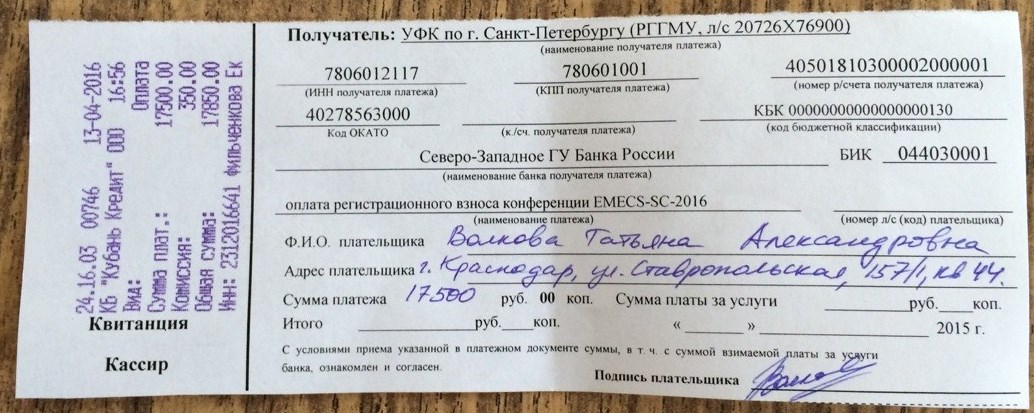 24.16.03 00746 13-04-2016
КБ "Кубань Кредит" ООО 16:56
Вид: Оплата
Сумма плат.: 17500.00
Комиссия: 350.00
Общая сумма: 17850.00
ИНН: 2312016641 Фильченкова Ек
Квитанция
Кассир
Получатель: УФК по г. Санкт-Петербургу (РГГМУ, л/с 20726Х76900)
(наименование получателя платежа)
7806012117 780601001 40501810300002000001
(ИНН получателя платежа) (КПП получателя платежа) (номер р/счета получателя платежа)
40278563000 КБК 00000000000000000130
Код ОКАТО (к./сч. получателя платежа) (код бюджетной классификации)
Северо-Западное ГУ Банка России БИК 044030001
(наименование банка получателя платежа)
оплата регистрационного взноса конференции EMECS-SC-2016
(наименование платежа) (номер л/с (код) плательщика)
Ф.И.О. плательщика Волкова Татьяна Александровна
Адрес плательщика г. Краснодар, ул. Ставропольская, 157/1, кв 44.
Сумма платежа 17500 руб. 00 коп. Сумма платы за услуги
Итого ______ руб. ___ коп. « ______ » ______ 2015 г.
С условиями приема указанной в платежном документе суммы, в т. ч. с суммой взимаемой платы за услуги
банка, ознакомлен и согласен.
Подпись плательщика